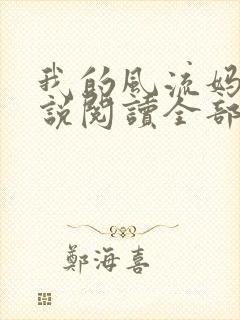 我的风流妈
說閱讀全部
鄭海喜